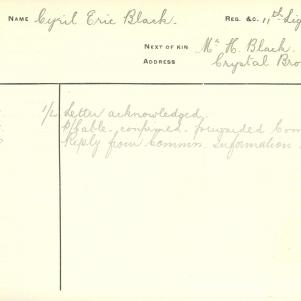 NAME Cyril Eric Black. REG. &C. 11th Lig
NEXT OF KIN Mr H. Black.
ADDRESS Crystal Bro
1/2 Letter acknowledged.
P/Cable. confirmed. forwarded Com
Reply from Commn. Information